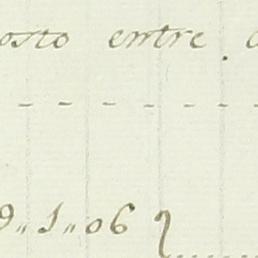 osto entre
9,,1,,06